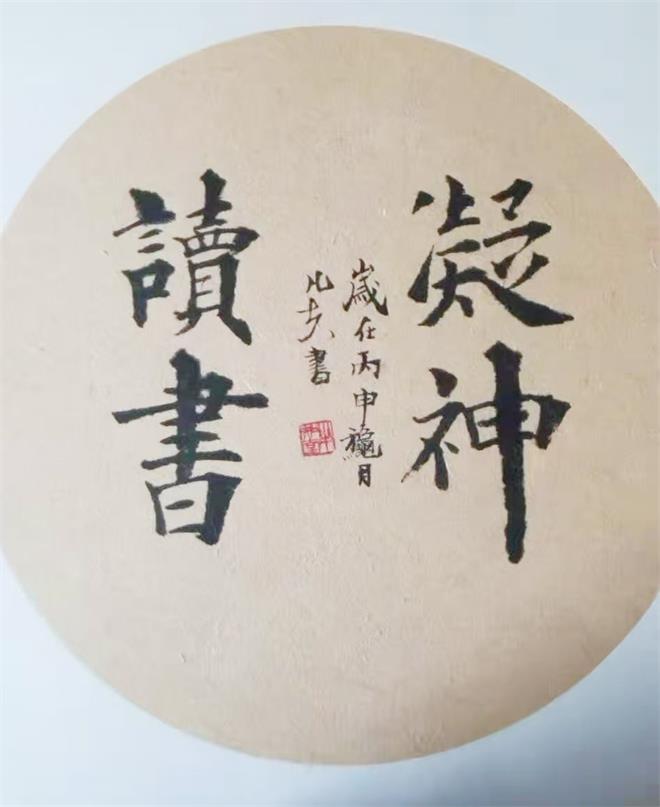 凝神
讀書
歲在丙申龝月
凡夫書